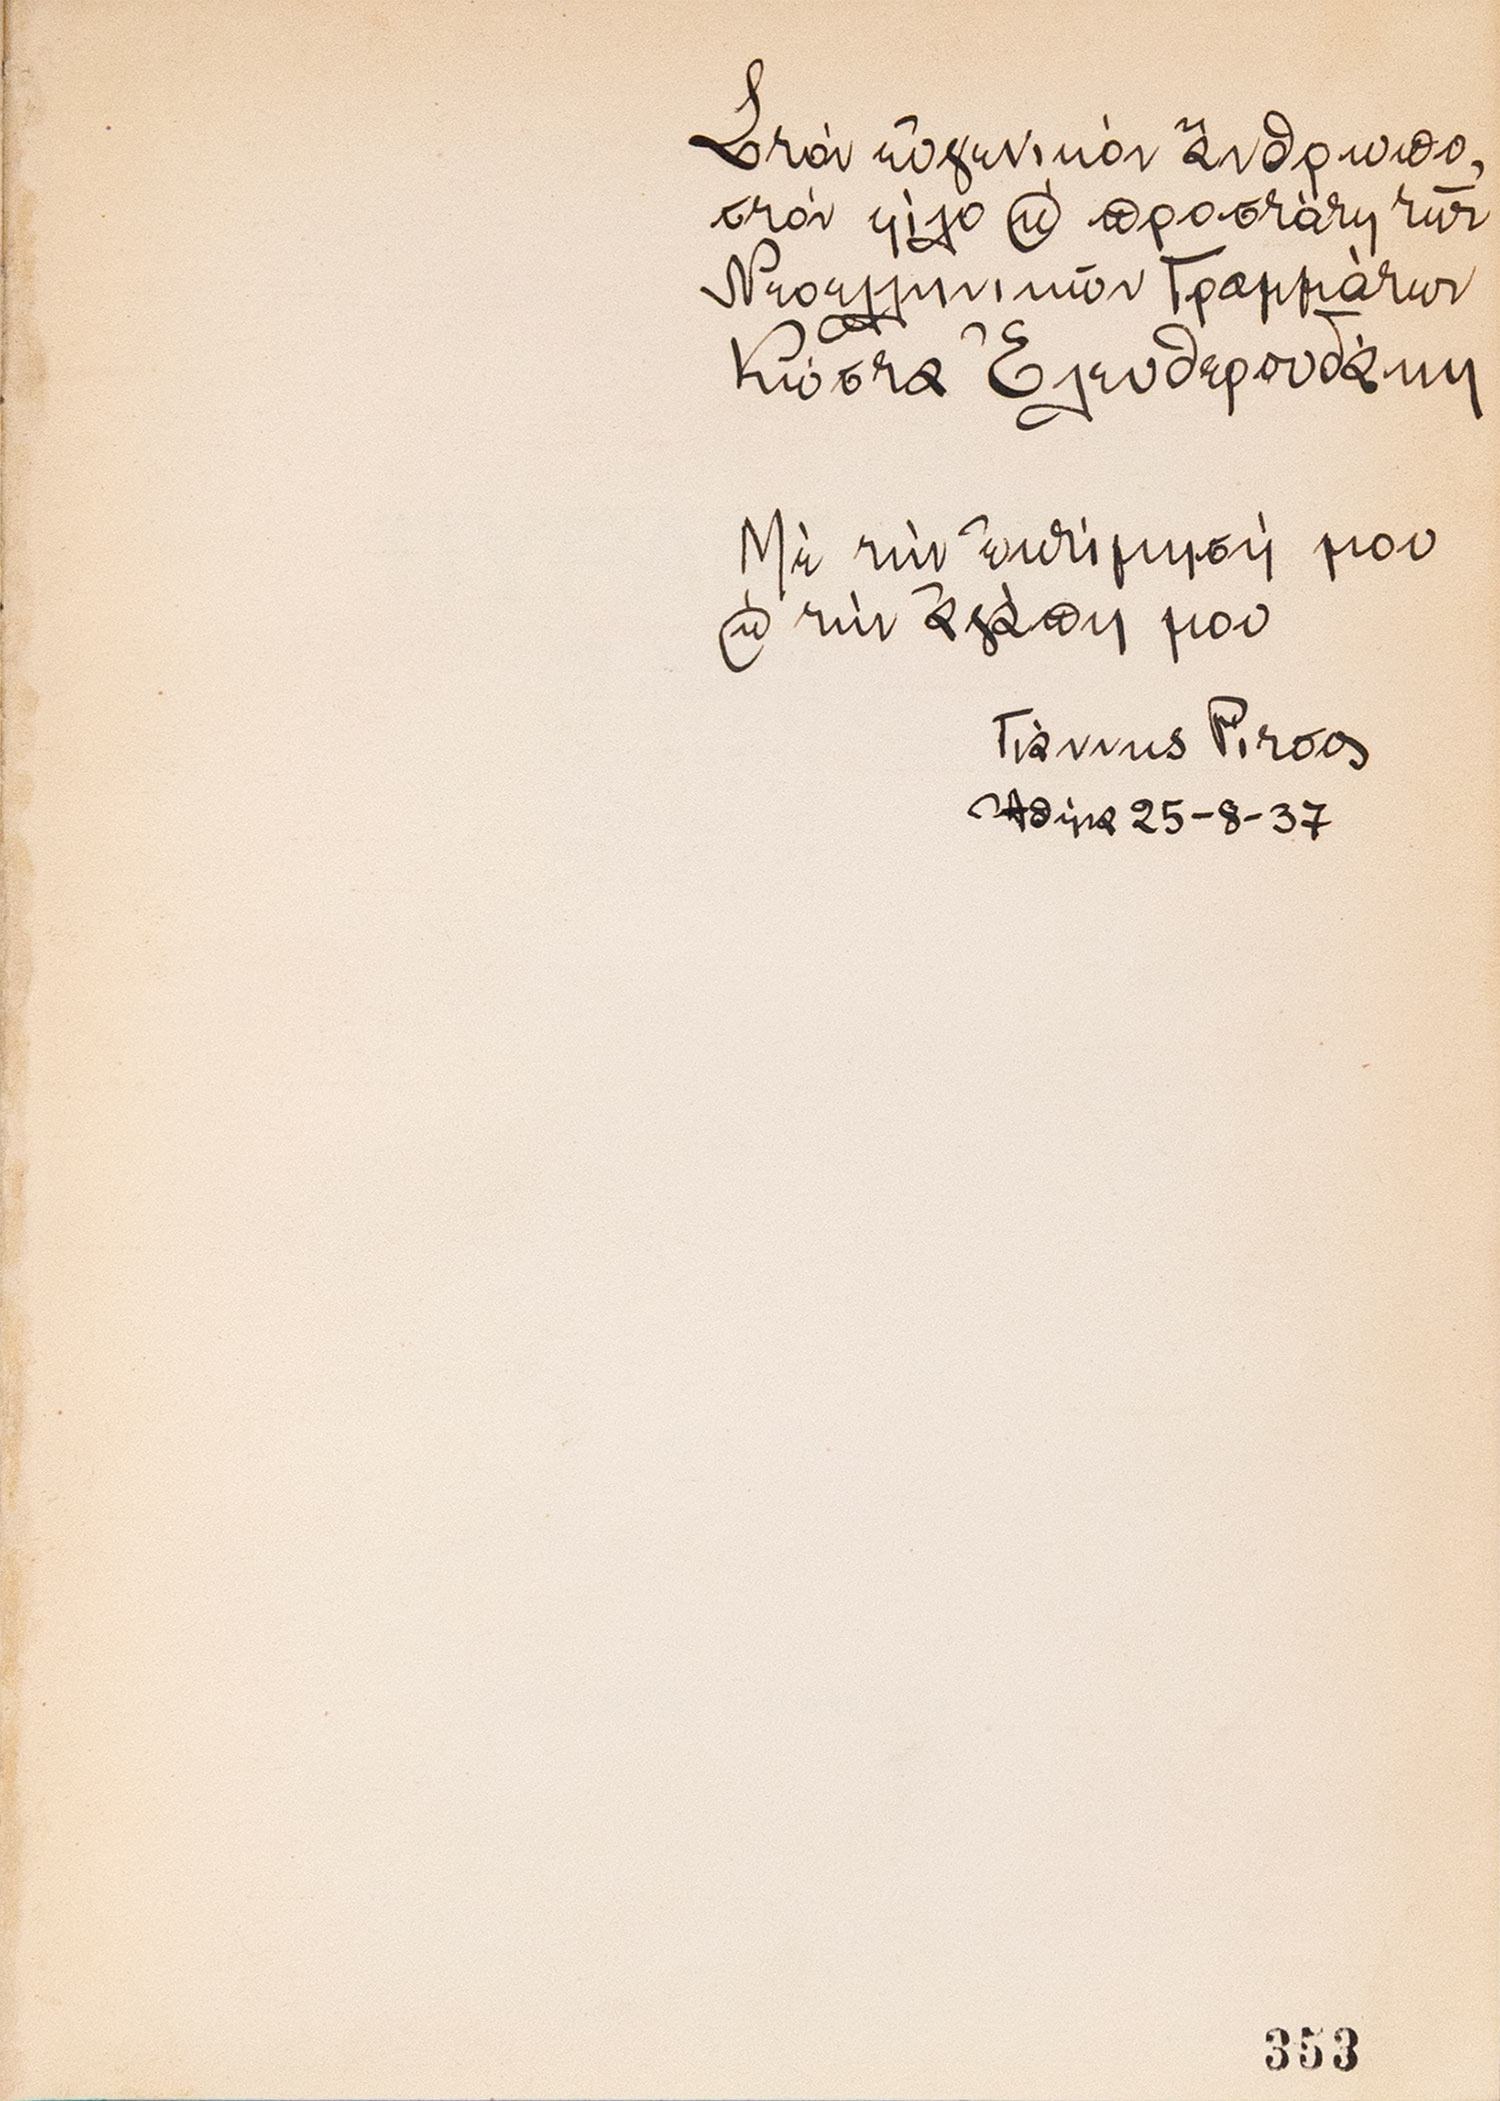 Στὸν εὐγενικὸν ἄνθρωπο,
στὸν φίλο ϗ̀ προστάτη τῶν
Νεοελληνικῶν Γραμμάτων
Κώστα Ἐλευθερουδάκη
Μὲ τὴν ἐκτίμησή μου
ϗ̀ τὴν ἀγάπη μου
Γιάννης Ρίτσος
Ἀθήνα 25-8-37
353